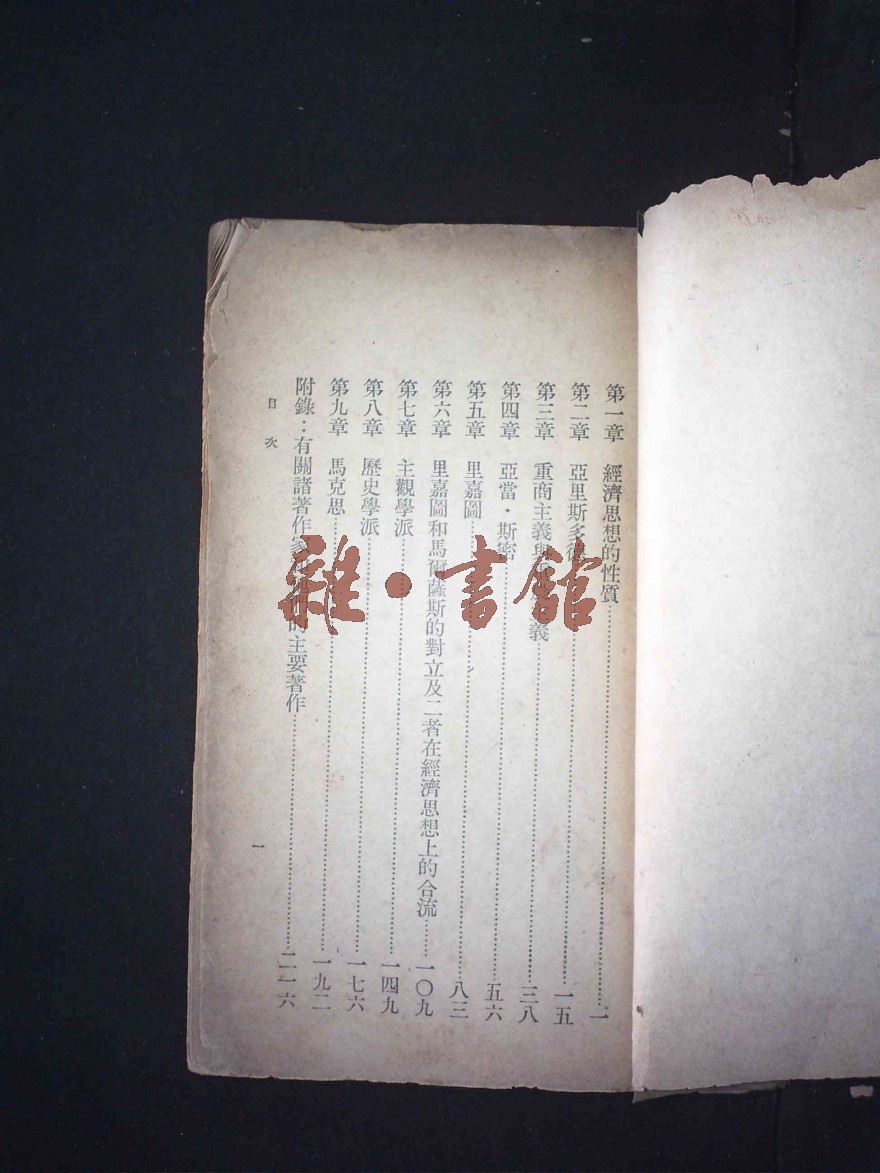 第一章　經濟思想的性质………一
第二章　亞里斯多德………一五
第三章　重商主義與重農主義………三八
第四章　亞當・斯密………五六
第五章　里嘉圖………八三
第六章　里嘉圖和馬爾薩斯的對立及二者在經濟思想上的合流………一〇九
第七章　主觀學派………一四九
第八章　歷史學派………一七六
第九章　馬克思………一九二
附錄：有關諸著作家　的主要著作………二一六
目次
一
雜・書館